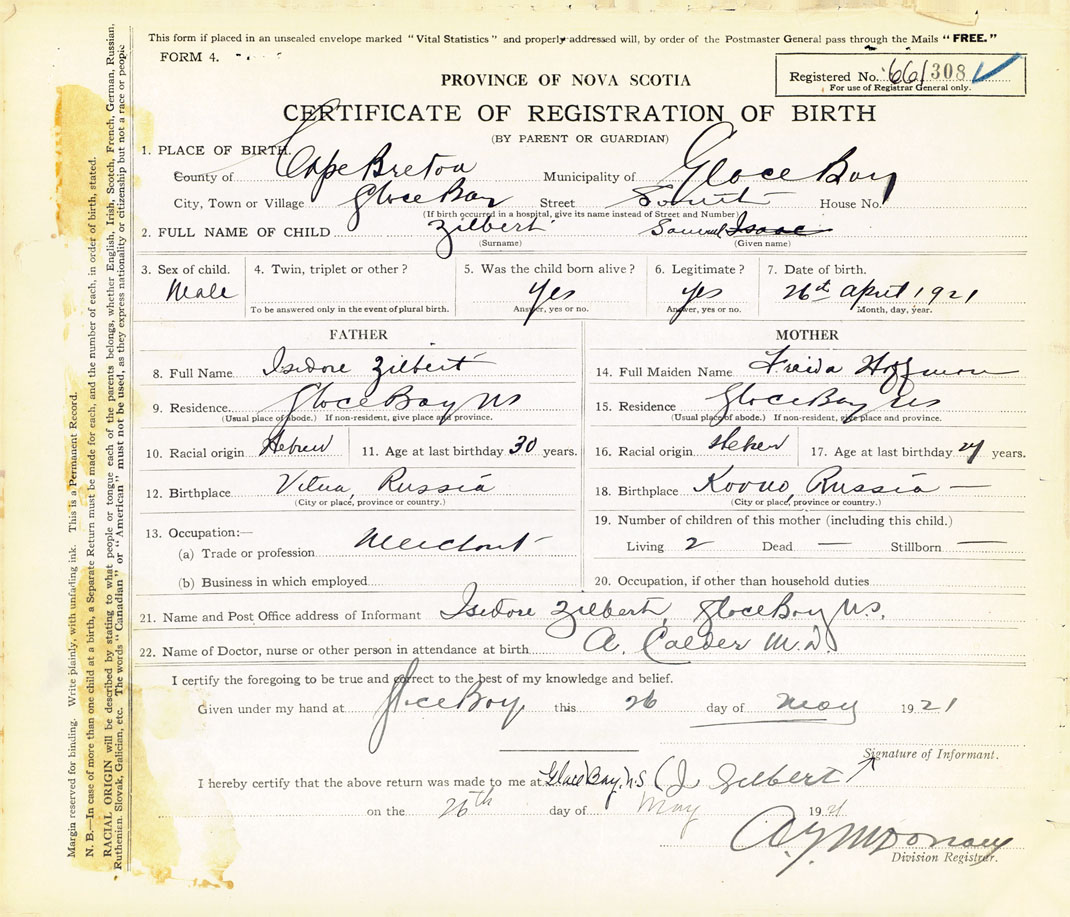 This form if placed in an unsealed envelope marked “Vital Statistics” and properly addressed will, by order of the Postmaster General pass through the Mails “FREE.”
FORM 4.
Registered No. 661308
For use of Registrar General only.
PROVINCE OF NOVA SCOTIA
CERTIFICATE OF REGISTRATION OF BIRTH
(BY PARENT OR GUARDIAN)
1. PLACE OF BIRTH.
County of Cape Breton Municipality of Glace Bay
City, Town or Village Glace Bay Street South House No.
(If birth occurred in a hospital, give its name instead of Street and Number)
2. FULL NAME OF CHILD Zilbert Samuel Isaac
(Surname) (Given name)
3. Sex of child. 4. Twin, triplet or other? 5. Was the child born alive? 6. Legitimate? 7. Date of birth.
Male Yes yes 26th April 1921
To be answered only in the event of plural birth. Answer, yes or no. Answer, yes or no. Month, day, year.
FATHER MOTHER
8. Full Name Isidore Zilbert 14. Full Maiden Name Freida Hoffman
9. Residence Glace Bay NS 15. Residence Glace Bay NS
(Usual place of abode.) If non-resident, give place and province. (Usual place of abode.) If non-resident, give place and province.
10. Racial origin Hebrew 11. Age at last birthday 30 years. 16. Racial origin 17. Age at last birthday years.
12. Birthplace Vilna, Russia 18. Birthplace Kovno, Russia —
(City or place, province or country.) (City or place, province or country.)
13. Occupation:— 19. Number of children of this mother (including this child.)
(a) Trade or profession Merchant Living 2 Dead — Stillborn —
(b) Business in which employed 20. Occupation, if other than household duties
21. Name and Post Office address of Informant Isidore Zilbert, Glace Bay N.S.
22. Name of Doctor, nurse or other person in attendance at birth A. Calder M.D.
I certify the foregoing to be true and correct to the best of my knowledge and belief.
Given under my hand at Glace Bay, this 26 day of May 1921
Signature of Informant.
I hereby certify that the above return was made to me at Glace Bay, N.S. (I Zilbert)
on the 26th day of May 1921
Division Registrar.
Margin reserved for binding. Write plainly, with unfading ink. This is a Permanent Record.
N. B.—In case of more than one child at a birth, a Separate Return must be made for each, and the number of each, in order of birth, stated.
RACIAL ORIGIN will be described by stating to what people or tongue each of the parents belongs, whether English, Irish, Scotch, French, German, Russian,
Ruthenian, Slovak, Galician, etc. The words “Canadian” or “American” must not be used, as they express nationality or citizenship but not a race or people